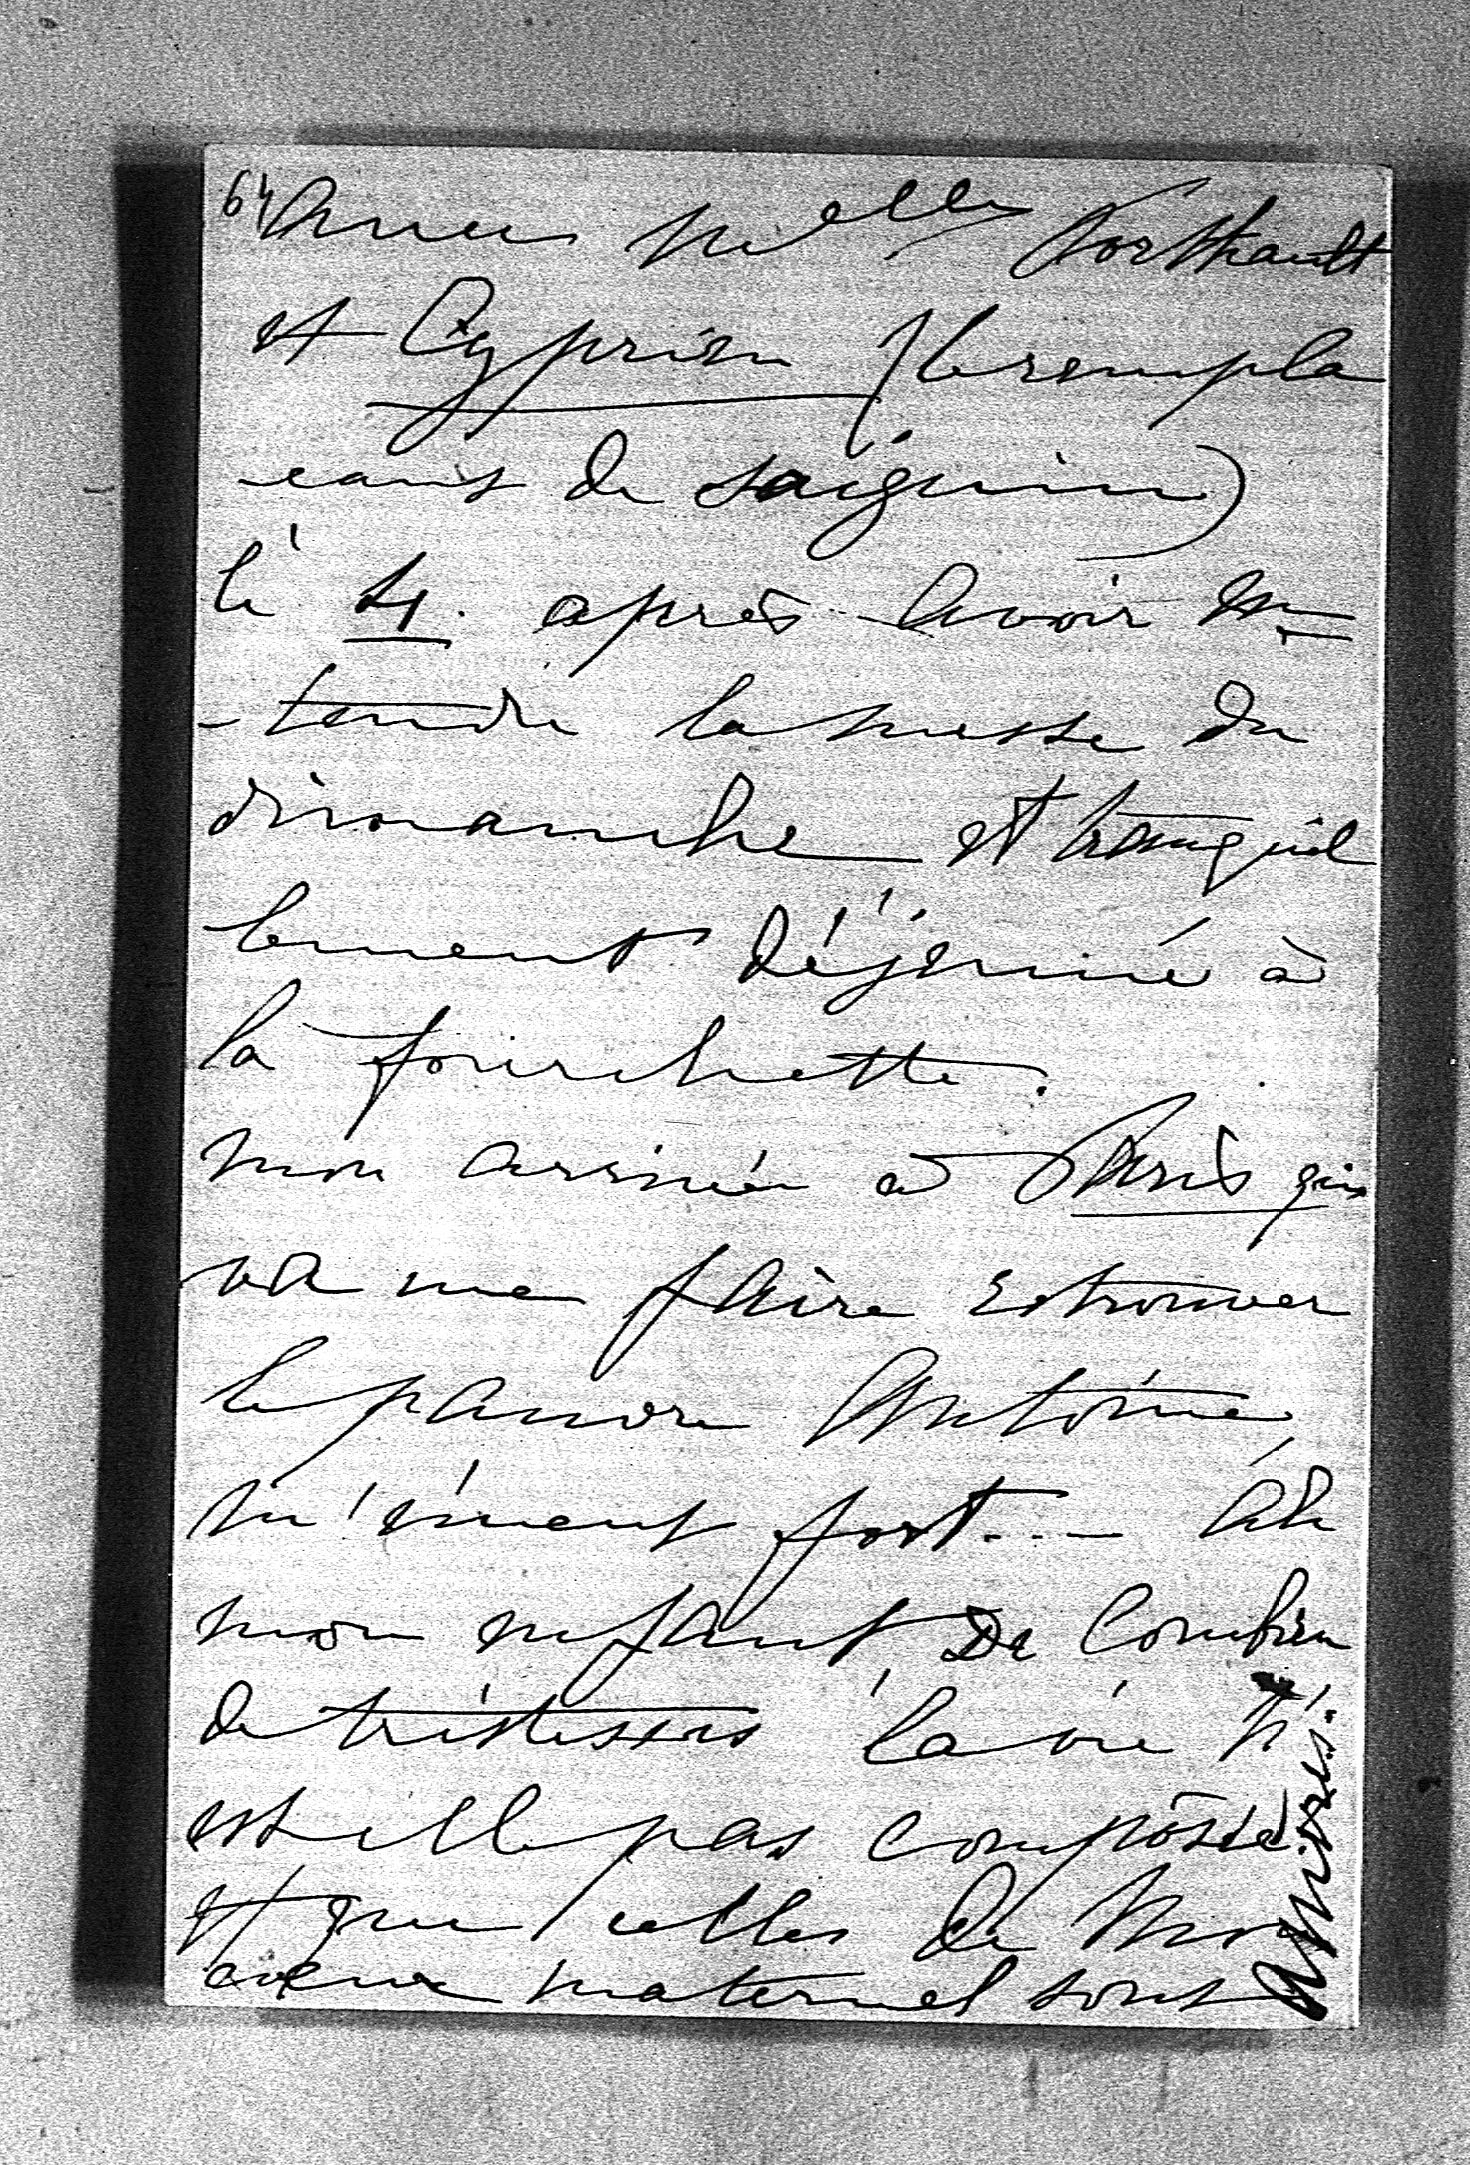 64 avec Melle Porthault
et Cyprien (le rempla
-cant de Saiguin)
le 4. après avoir en=
-tendu la messe du
dimanche et tranquil
lement déjeuné à
la fourchette.
mon arrivée à Paris qui
va me faire retrouver
le pauvre Antoine
m'émeut fort... Ah
mon enfant de combien
de tristesses la vie n'
est elle pas composée
et que celles de mon
coeur maternel sont
amères.